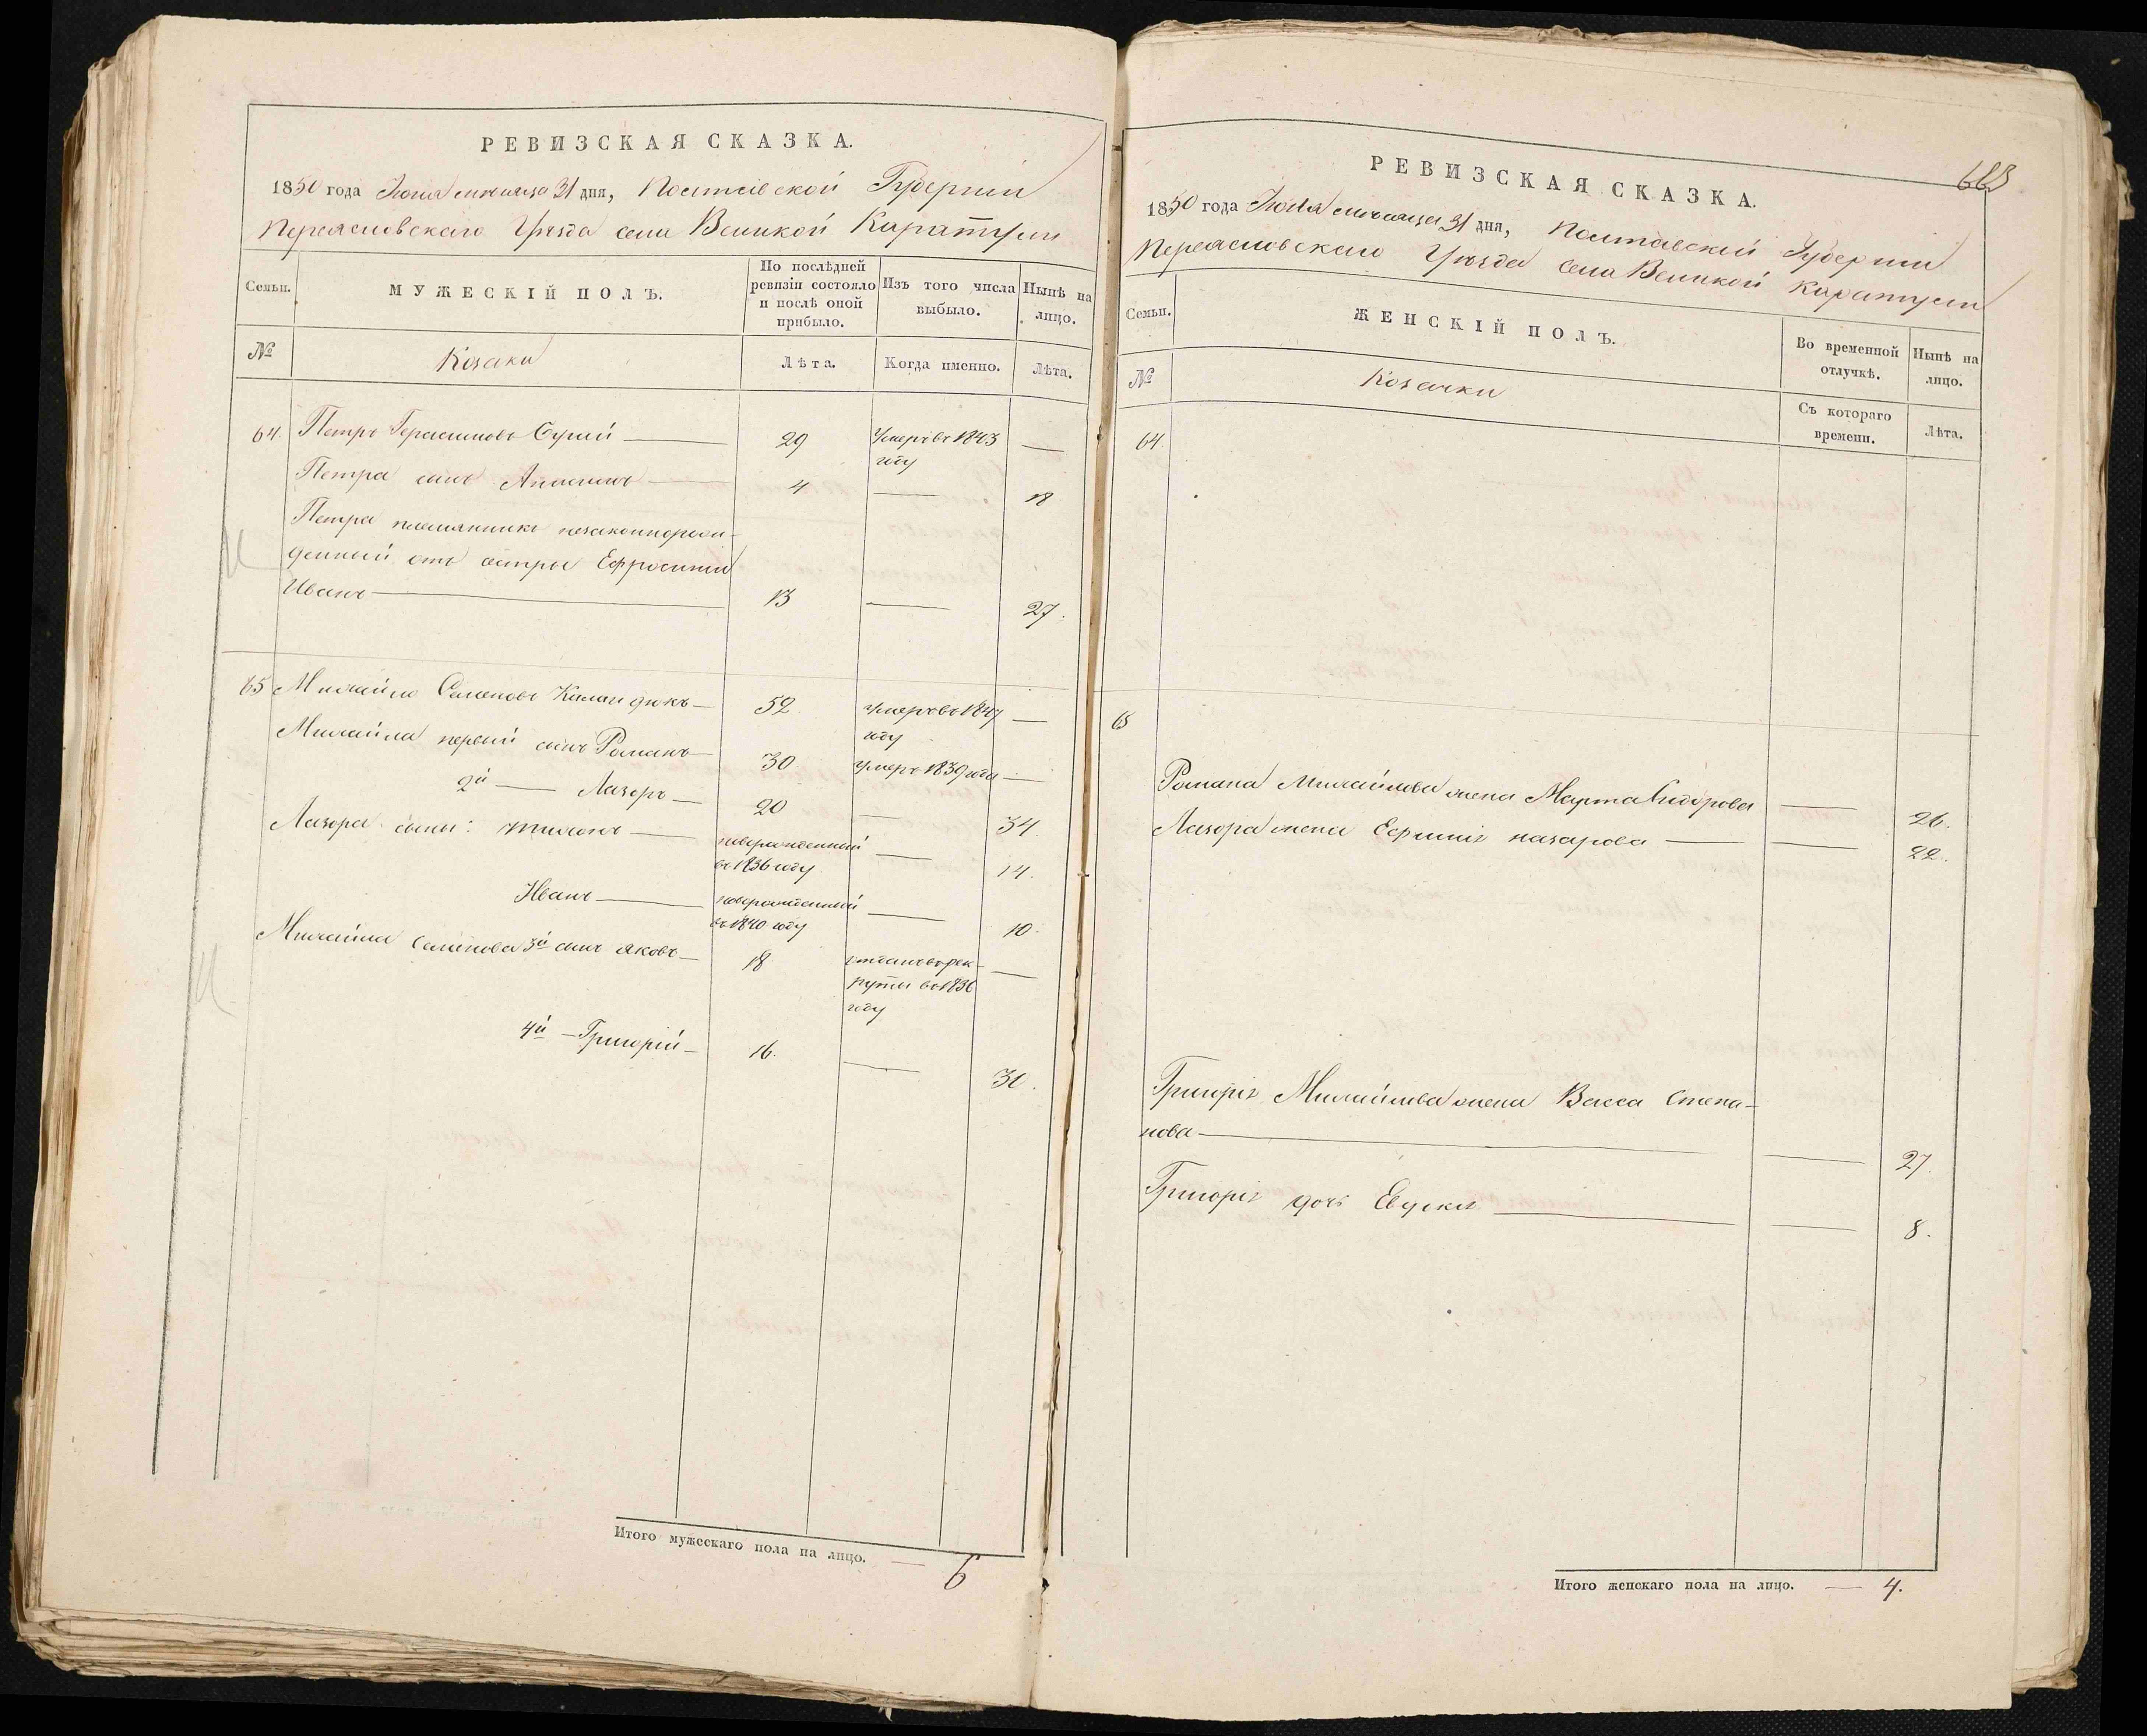 РЕВИЗСКАЯ СКАЗКА.
1850 года Июля месяца 31 дня, Полтавской Губернии
Переясловского Уезда села Великой Каратули
Семьи.
МУЖЕСКІЙ ПОЛЪ.
По послѣдней ревизіи состояло и послѣ оной прибыло.
Изъ того числа выбыло.
Нынѣ на лицо.
№
Козаки
Лѣта.
Когда именно.
Лѣта.
64. Петръ Герасимовъ 29 Умеръ въ 1843 году —
Петра сынъ 4 — 18
Петра племянникъ незаконнорож-
денный отъ сестры Ефросиніи
Иванъ 13 — 27.
65 Михайло Семеновъ 52 умеръ въ 1847 году —
Михайла первый сынъ Романъ 30 умеръ 1839 года —
2й — Лазоръ 20 — 34.
Лазора сыны: новорожденный въ 1836 году — 14.
Иванъ новорожденный въ 1840 году — 10.
Михайла Семенова 3й сынъ Яковъ 18 отданъ въ рек-
руты въ 1836
году —
4й — Григорій 16. — 30.
Итого мужескаго пола на лицо. — 6
РЕВИЗСКАЯ СКАЗКА.
1850 года Июля месяца 31 дня, Полтавской Губернии
Переясловского Уезда села Великой Каратули
Семьи.
ЖЕНСКІЙ ПОЛЪ.
Во временной отлучкѣ.
Нынѣ на лицо.
№
Козачки
Съ котораго времени.
Лѣта.
64.
65
Романа Михайлова жена Марта Сидорова — 26.
Лазора жена назарова — 22.
Григорія Михайлова жена Васса Степа-
нова — 27.
Григорія дочь Евдокія — 8.
Итого женскаго пола на лицо. — 4.